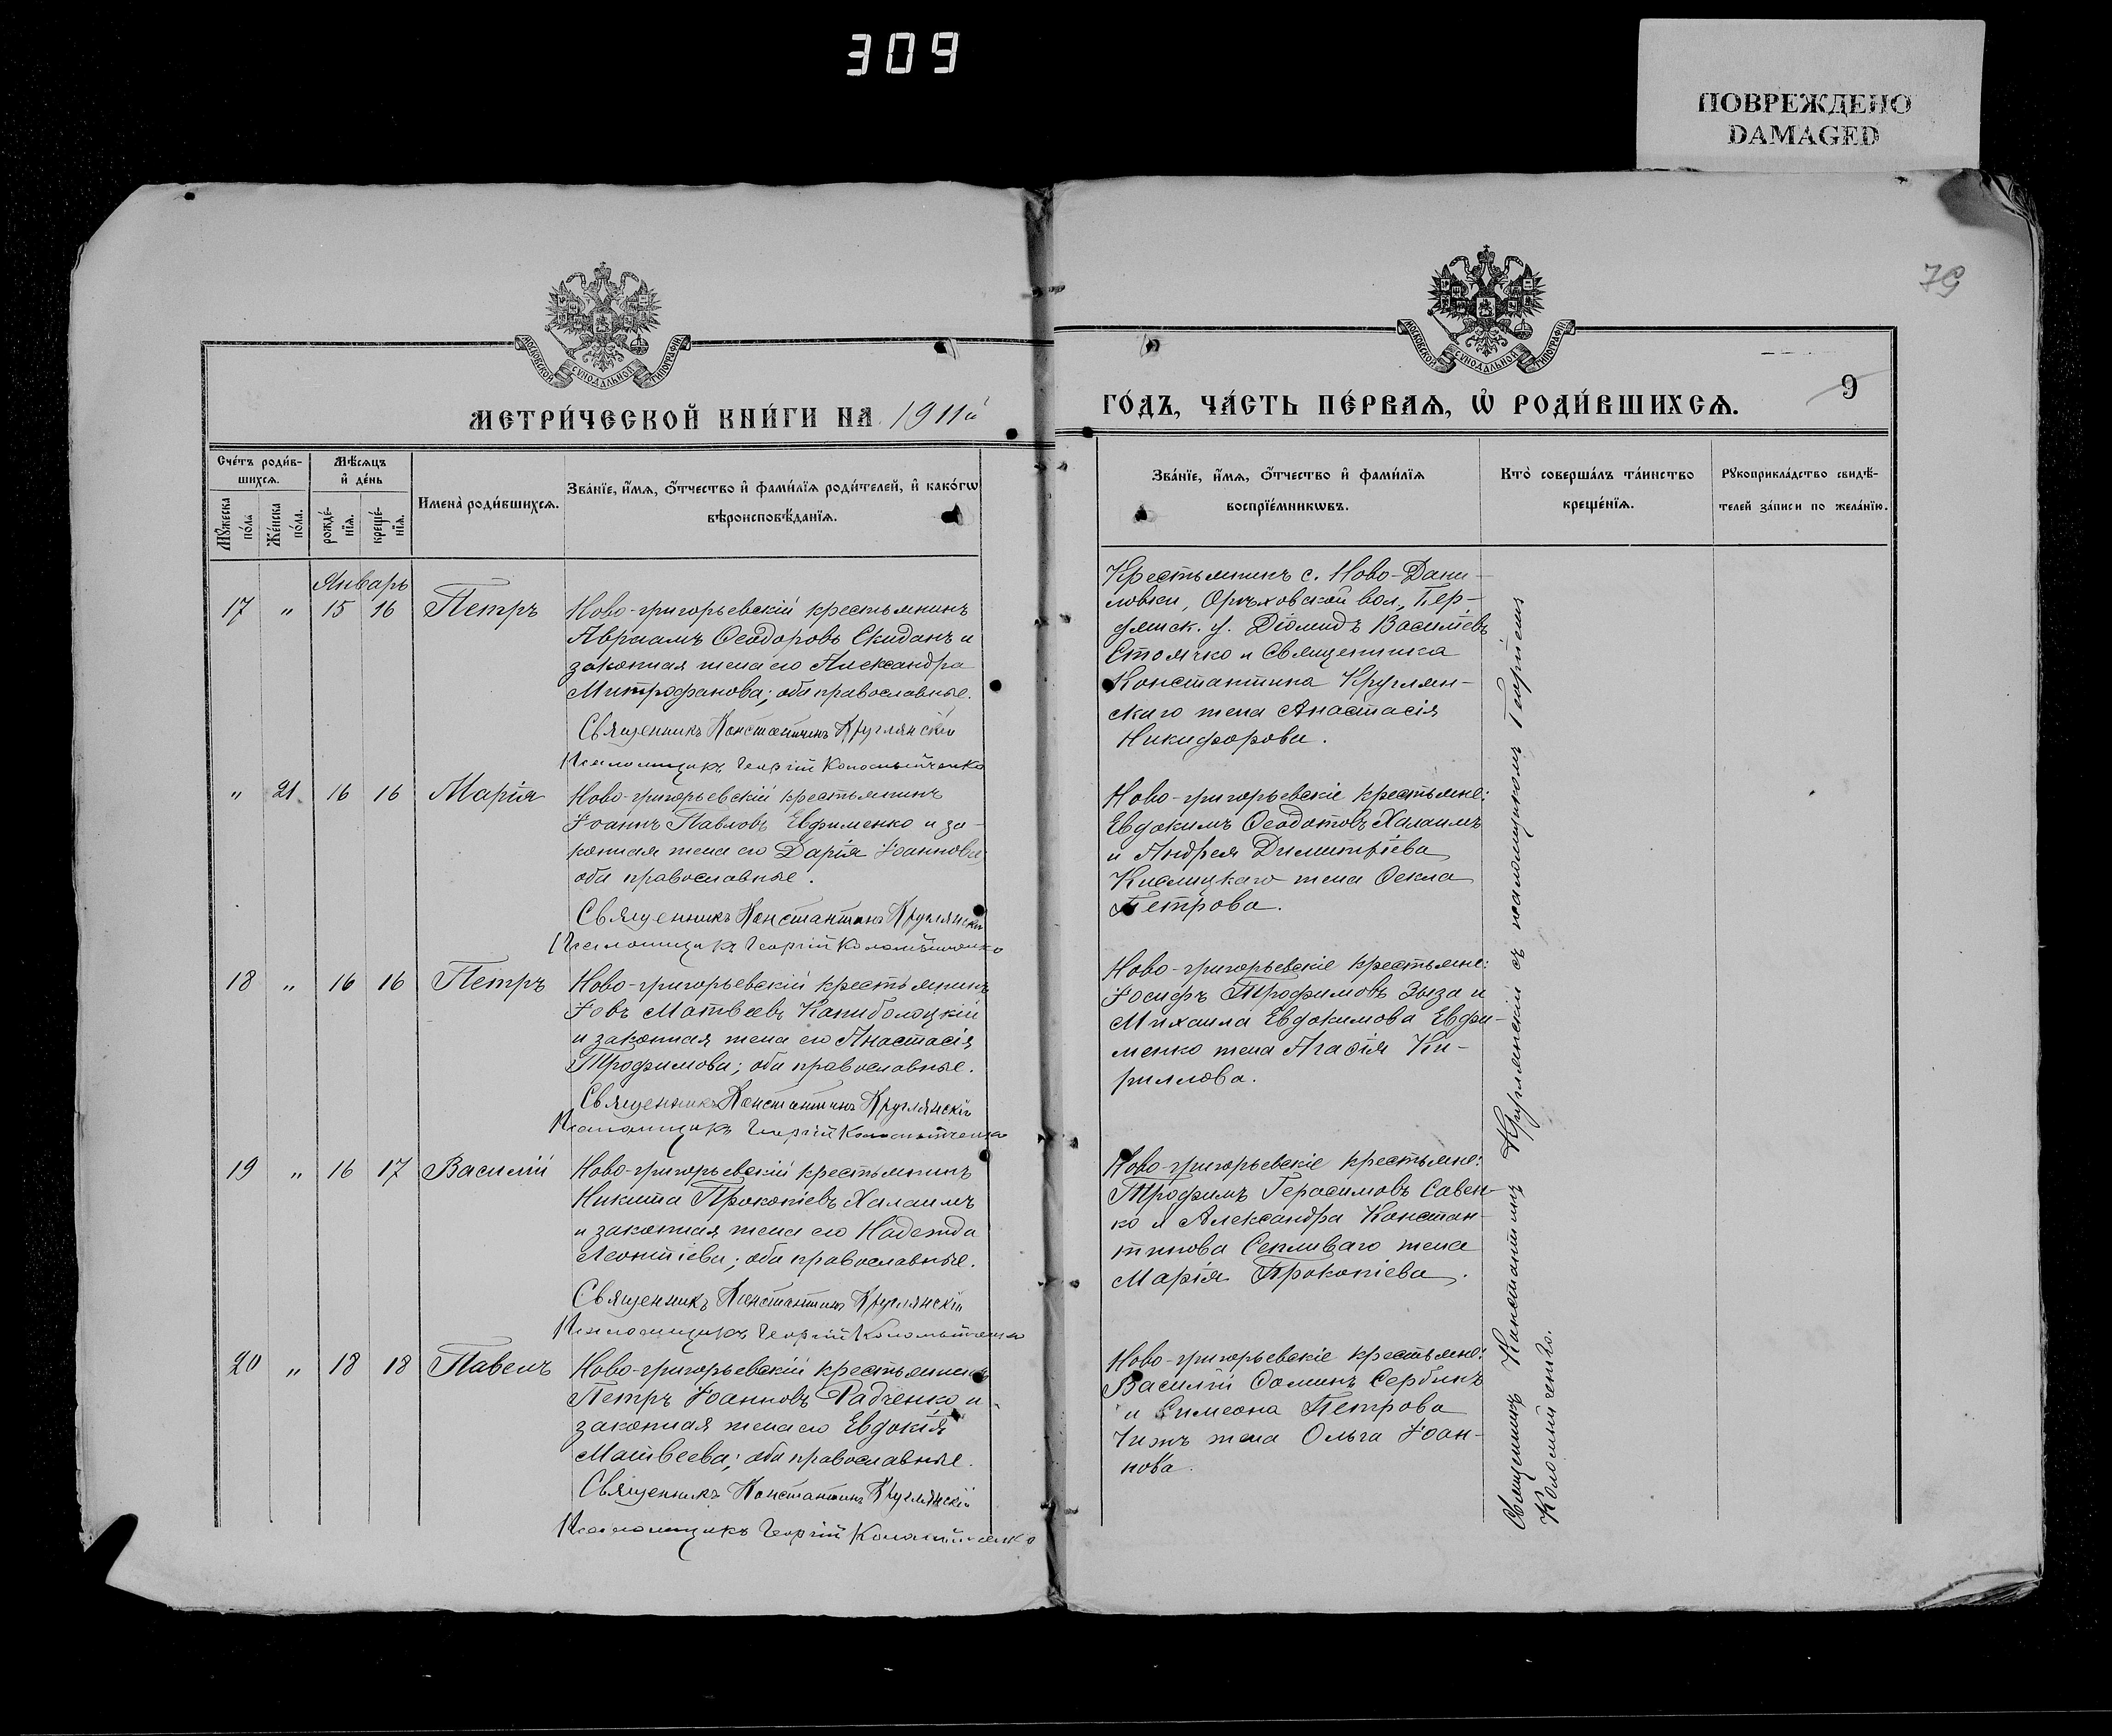 309
ПОВРЕЖДЕНО
DAMAGED
79
МОСКОВСКОЙ СѴНОДАЛЬНОЙ ТИПОГРАФІИ
МОСКОВСКОЙ СѴНОДАЛЬНОЙ ТИПОГРАФІИ
МЕТРИ́ЧЕСКОЙ КНИ́ГИ НА 1911й
ГО́ДЪ, ЧА́СТЬ ПЕ́РВАѦ, Ѡ҆ РОДИ́ВШИХСѦ.
9
Сче́тъ роди́в-
шихсѧ.
Мꙋ́жеска
по́ла
Же́нска
по́ла.
Мѣ́сѧцъ
и҆ де́нь
рожде́-
нїѧ.
креще́-
нїѧ.
Имена̀ роди́вшихсѧ.
Зва́нїе, и҆́мѧ, ѻ҆́тчество и҆ фами́лїѧ роди́телей, и҆ како́гѡ
вѣроисповѣ́данїѧ.
Зва́нїе, и҆́мѧ, ѻ҆́тчество и҆ фами́лїѧ
воспрїе́мникѡвъ.
Кто̀ соверша́лъ та́инство
креще́нїѧ.
Рꙋкоприкла́дство свидѣ́-
телей за́писи по жела́нїю.
Январь
17 " 15 16 Петръ
Ново-григорьевскій крестьянинъ
Авраамъ Ѳеодоровъ Скиданъ и
законная жена его Александра
Митрофанова; оба православные.
Священникъ Константинъ Круглянскій
Псаломщикъ Георгій Коломыйченко
Крестьянинъ с. Ново-Дани-
ловки, Орѣховской вол., Бер-
дянск. у. Діомидъ Василіевъ
Стоячко и Священника
Константина Круглян-
скаго жена Анастасія
Никифорова.
" 21 16 16 Марія
Ново-григорьевскій крестьянинъ
Іоаннъ Павловъ Евфименко и за-
конная жена его Дарія Іоаннова;
оба православные.
Священникъ Константинъ Круглянскій
Псаломщикъ Георгій Коломыйченко
Ново-григорьевскіе крестьяне:
Евдокимъ Ѳеодотовъ Халаимъ
и Андрея Димитріева
Кислицкаго жена Ѳекла
Петрова.
18 " 16 16 Петръ
Ново-григорьевскій крестьянинъ
Іовъ Матвеевъ Капиболоцкій
и законная жена его Анастасія
Трофимова; оба православные.
Священникъ Константинъ Круглянскій
Псаломщикъ Георгій Коломыйченко
Ново-григорьевскіе крестьяне:
Іосифъ Трофимовъ Зыза и
Михаила Евдокимова Евфи-
менко жена Агафія Ки-
риллова.
19 " 16 17 Василій
Ново-григорьевскій крестьянинъ
Никита Прокопіевъ Халаимъ
и законная жена его Надежда
Леонтіева; оба православные.
Священникъ Константинъ Круглянскій
Псаломщикъ Георгій Коломыйченко
Ново-григорьевскіе крестьяне:
Трофимъ Герасимовъ Савен-
ко и Александра Констан-
тинова Сепливаго жена
Марія Прокопіева.
20 " 18 18 Павелъ
Ново-григорьевскій крестьянинъ
Петръ Іоанновъ Радченко и
законная жена его Евдокія
Матвеева; оба православные.
Священникъ Константинъ Круглянскій
Псаломщикъ Георгій Коломыйченко
Ново-григорьевскіе крестьяне:
Василій Ѳоминъ Сербинъ
и Симеона Петрова
Чижъ жена Ольга Іоан-
нова.
Священникъ Константинъ Круглянскій съ псаломщикомъ Георгіемъ
Коломыйченко.